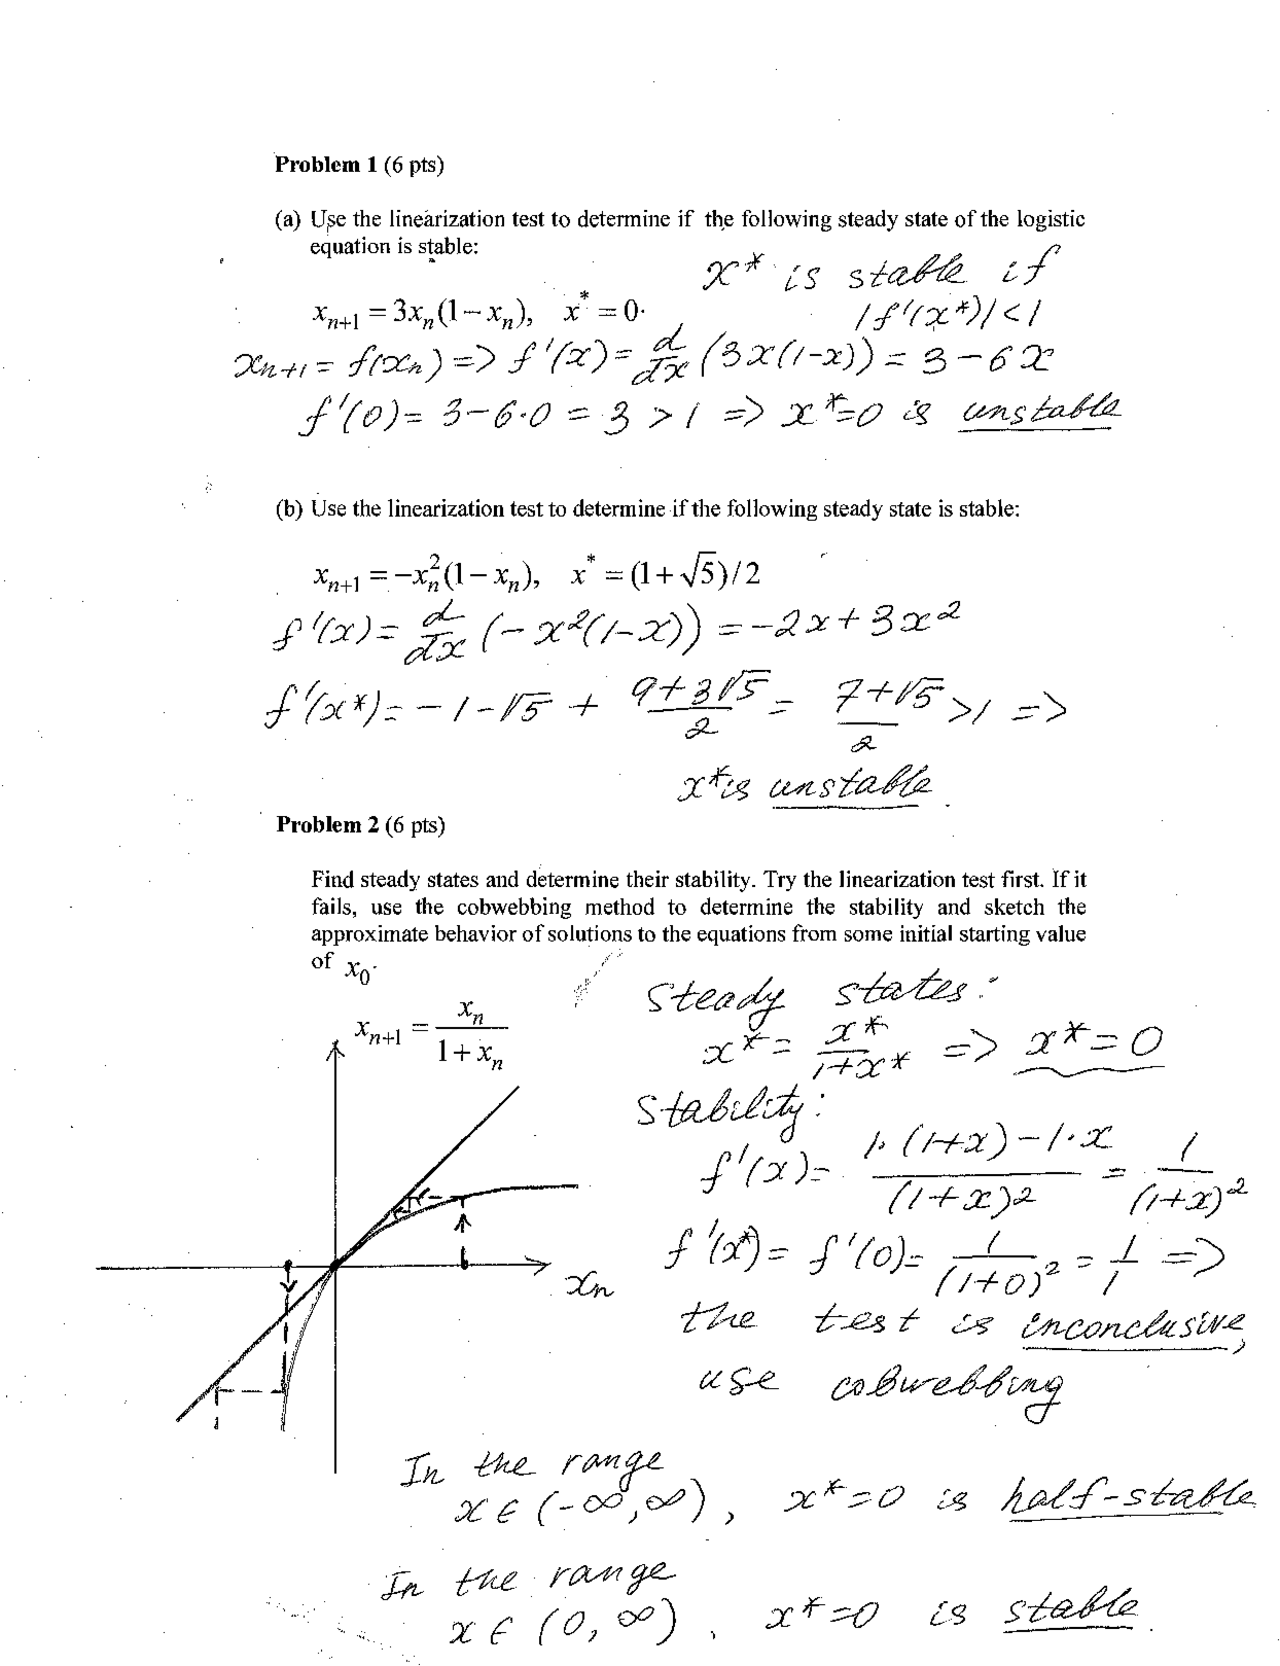 Problem 1 (6 pts)
(a) Use the linearization test to determine if the following steady state of the logistic
equation is stable:
x* is stable if
x_{n+1} = 3x_n(1−x_n), x* = 0.
|f'(x*)| < 1
x_{n+1} = f(x_n) => f'(x) = d/dx (3x(1-x)) = 3 - 6x
f'(0) = 3-6·0 = 3 > 1 => x*=0 is unstable
(b) Use the linearization test to determine if the following steady state is stable:
x_{n+1} = −x_n^2(1−x_n), x* = (1+√5)/2
f'(x) = d/dx (-x^2(1-x)) = -2x + 3x^2
f'(x*) = -1-√5 + (9+3√5)/2 = (7+√5)/2 >1 =>
x* is unstable
Problem 2 (6 pts)
Find steady states and determine their stability. Try the linearization test first. If it
fails, use the cobwebbing method to determine the stability and sketch the
approximate behavior of solutions to the equations from some initial starting value
of x_0.
Steady states:
x_{n+1} = x_n/(1+x_n)
x* = x*/(1+x*) => x*=0
Stability:
f'(x) = (1·(1+x)-1·x)/(1+x)^2 = 1/(1+x)^2
f'(x*) = f'(0) = 1/(1+0)^2 = 1/1 =>
x_n
the test is inconclusive,
use cobwebbing
In the range
x ∈ (-∞,∞), x*=0 is half-stable
In the range
x ∈ (0, ∞), x*=0 is stable